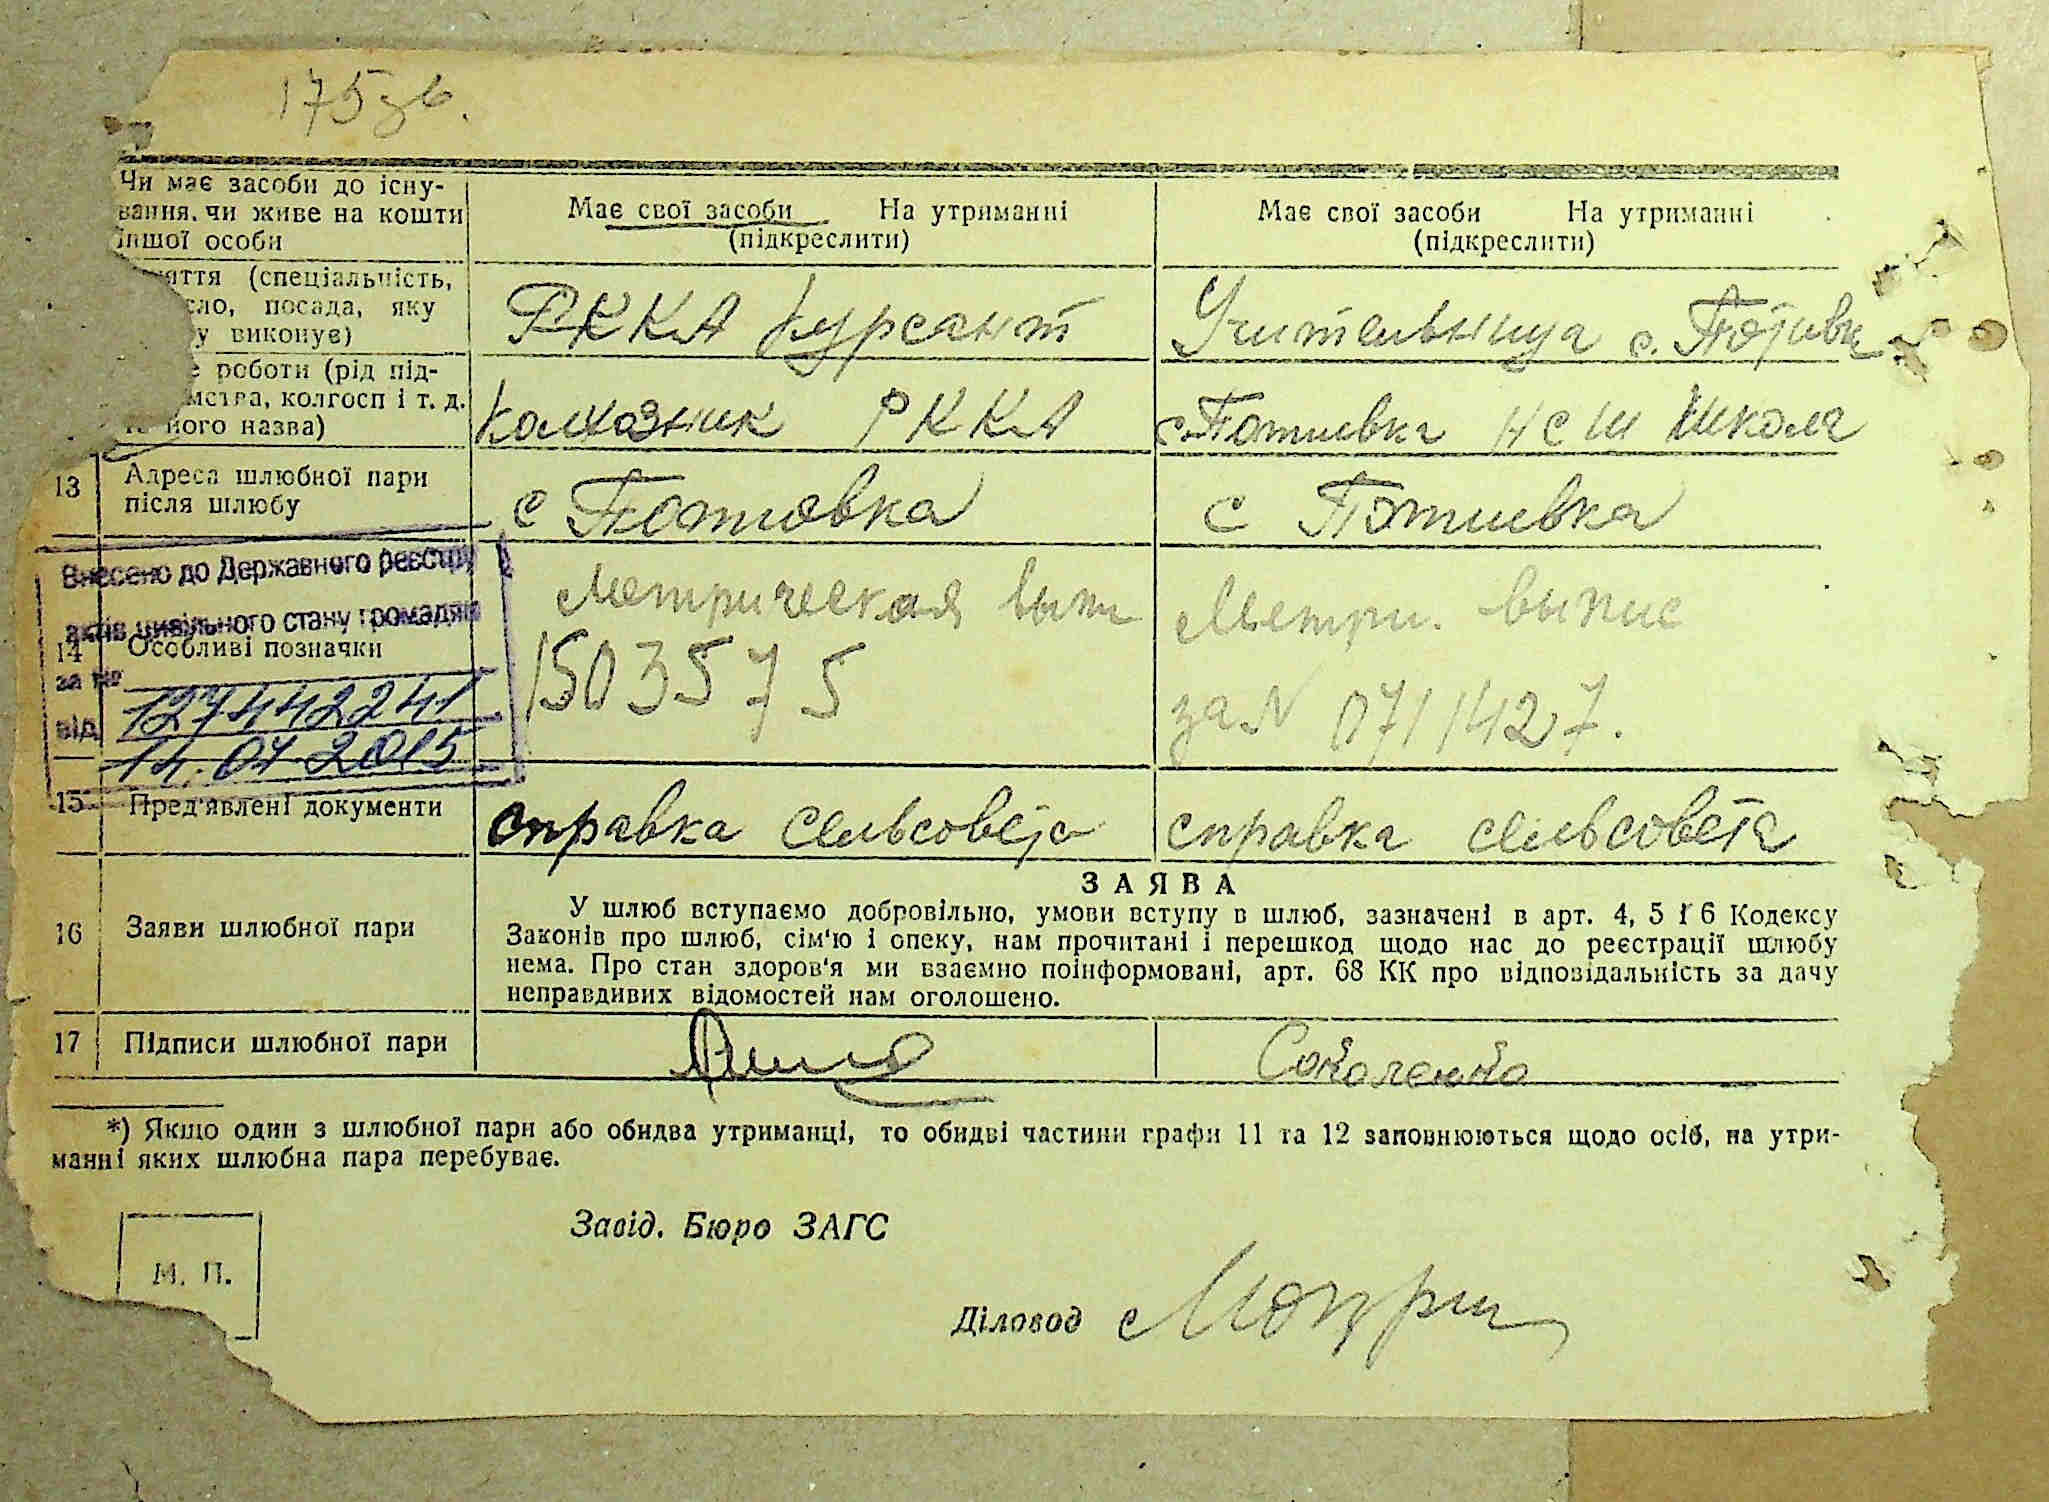 175 зв.
Чи має засоби до існу-
вання, чи живе на кошти
іншої особи
Має свої засоби На утриманні
(підкреслити)
Має свої засоби На утриманні
(підкреслити)
яття (спеціальність,
сло, посада, яку
у виконує)
РККА Курсант
Учительница с.
е роботи (рід під-
мства, колгосп і т. д.
ного назва)
Колхозник РККА
с. Потиевка НСШ Школа
13 Адреса шлюбної пари
після шлюбу
с Потиевка
с Потиевка
Внесено до Державного реєстру
актів цивільного стану громадян
14 Особливі позначки
за №
127442241
від
Метрическая вып
1503575
Метри. выпис
за N 0711427.
15 Пред'явлені документи
справка сельсовета
справка сельсовета
16 Заяви шлюбної пари
ЗАЯВА
У шлюб вступаємо добровільно, умови вступу в шлюб, зазначені в арт. 4, 5 і 6 Кодексу
Законів про шлюб, сім'ю і опеку, нам прочитані і перешкод щодо нас до реєстрації шлюбу
нема. Про стан здоров'я ми взаємно поінформовані, арт. 68 КК про відповідальність за дачу
неправдивих відомостей нам оголошено.
17 Підписи шлюбної пари
Соколенко
*) Якщо один з шлюбної пари або обидва утриманці, то обидві частини графи 11 та 12 заповнюються щодо осіб, на утри-
манні яких шлюбна пара перебуває.
Завід. Бюро ЗАГС
М. П.
Діловод